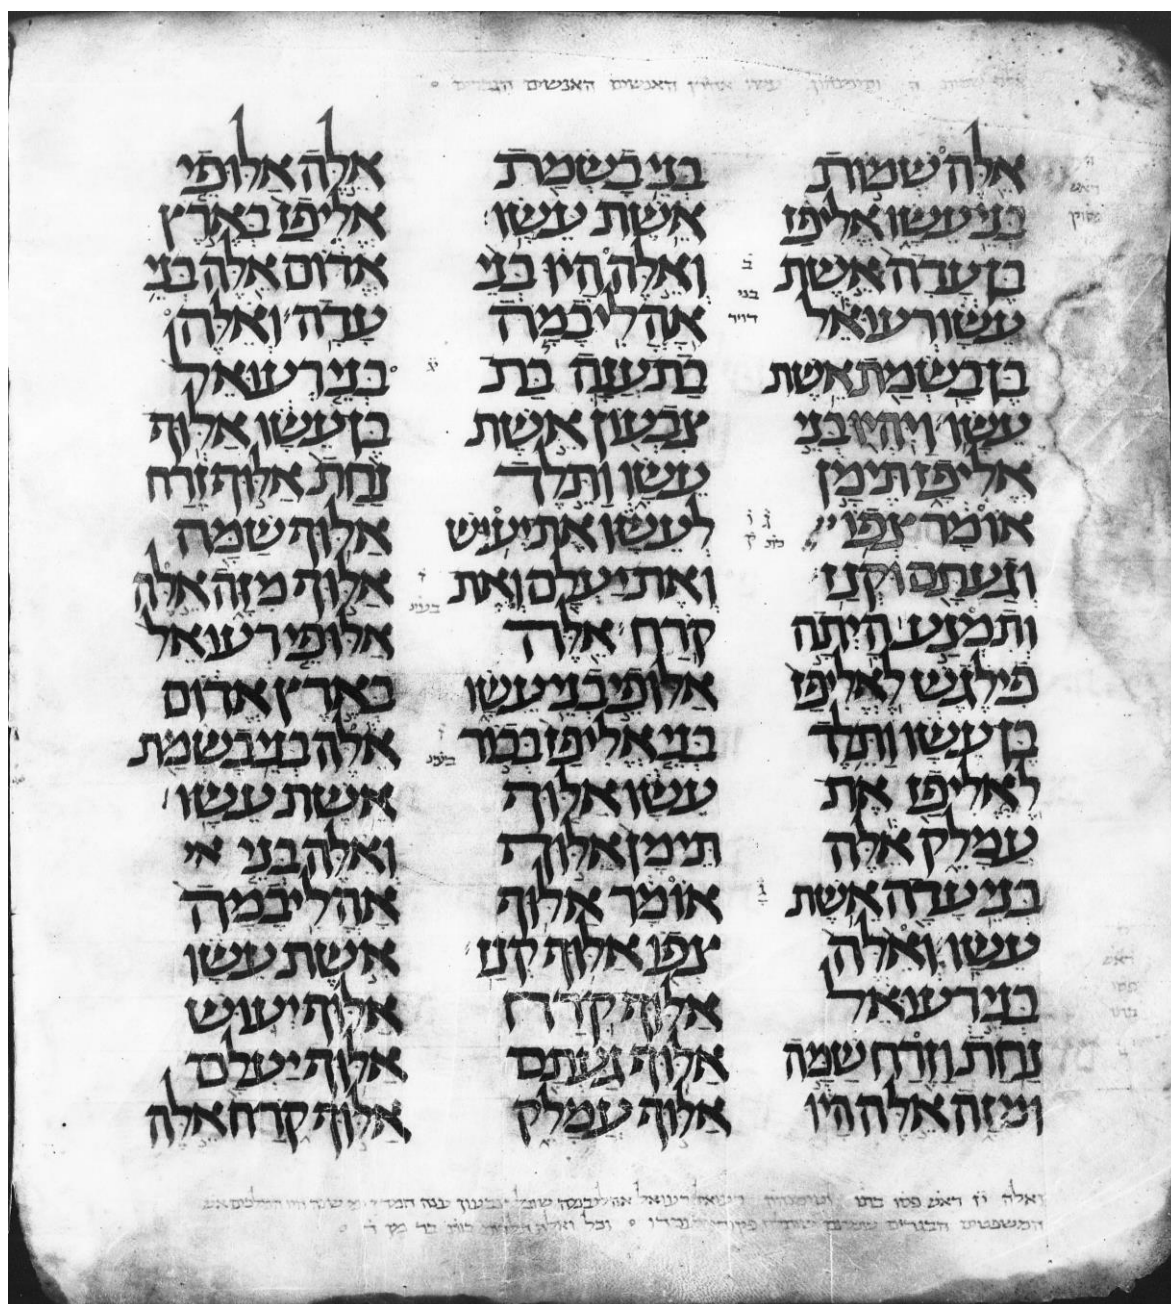 עשו אהרן האנשים האנשים
אלה שמות
בני עשו אליפז
בן עדה אשת
עשו רעואל
בן בשמת אשת
עשו ויהיו בני
אליפז תימן
אומר צפו
וגעתם וקנז
ותמנע היתה
פילגש לאליפז
בן עשו ותלד
לאליפז את
עמלק אלה
בני עדה אשת
עשו ואלה
בני רעואל
נחת וזרח שמה
ומזה אלה היו
ב
בני
דויד
בני בשמת
אשת עשו
ואלה היו בני
אהליבמה
בת ענה בת
צבעון אשת
עשו ותלד
לעשו את יעיש
ואת יעלם ואת
קרח אלה
אלופי בני עשו
בני אליפז בכור
עשו אלוף
תימן אלוף
אומר אלוף
צפו אלוף קנז
אלוף קרח
אלוף געתם
אלוף עמלק
אלה אלופי
אליפז בארץ
אדום אלה בני
עדה ואלה
בני רעואל
בן עשו אלוף
נחת אלוף זרח
אלוף שמה
אלוף מזה אלה
אלופי רעואל
בארץ אדום
אלה בני בשמת
אשת עשו
ואלה בני
אהליבמה
אשת עשו
אלוף יעוש
אלוף יעלם
אלוף קרח אלה
ואלה יז ראש פסו רעואל אהליבמה שובל צבעון ענה
המשפטים הבגדים